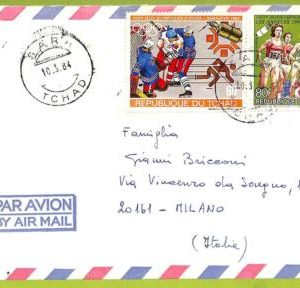 SARH
10.3.84
TCHAD
SARAJEVO
LOS ANGELES
60F
REPUBLIQUE DU TCHAD
80F
REPUBLIQUE
Famiglia
Gianni Bricconi
Via Vincenzo da Seregno,
20161 - MILANO
(Italia)
PAR AVION
BY AIR MAIL